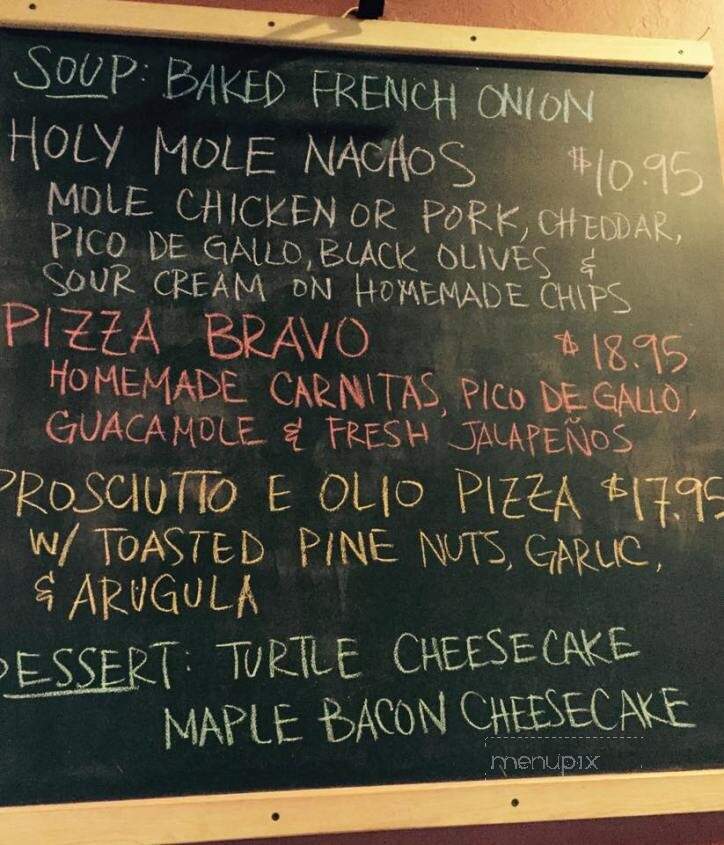 SOUP: BAKED FRENCH ONION
HOLY MOLE NACHOS $10.95
MOLE CHICKEN OR PORK, CHEDDAR,
PICO DE GALLO, BLACK OLIVES &
SOUR CREAM ON HOMEMADE CHIPS
PIZZA BRAVO $18.95
HOMEMADE CARNITAS, PICO DE GALLO,
GUACAMOLE & FRESH JALAPEÑOS
PROSCIUTTO E OLIO PIZZA $17.95
W/ TOASTED PINE NUTS, GARLIC,
& ARUGULA
DESSERT: TURTLE CHEESECAKE
MAPLE BACON CHEESECAKE
menupix